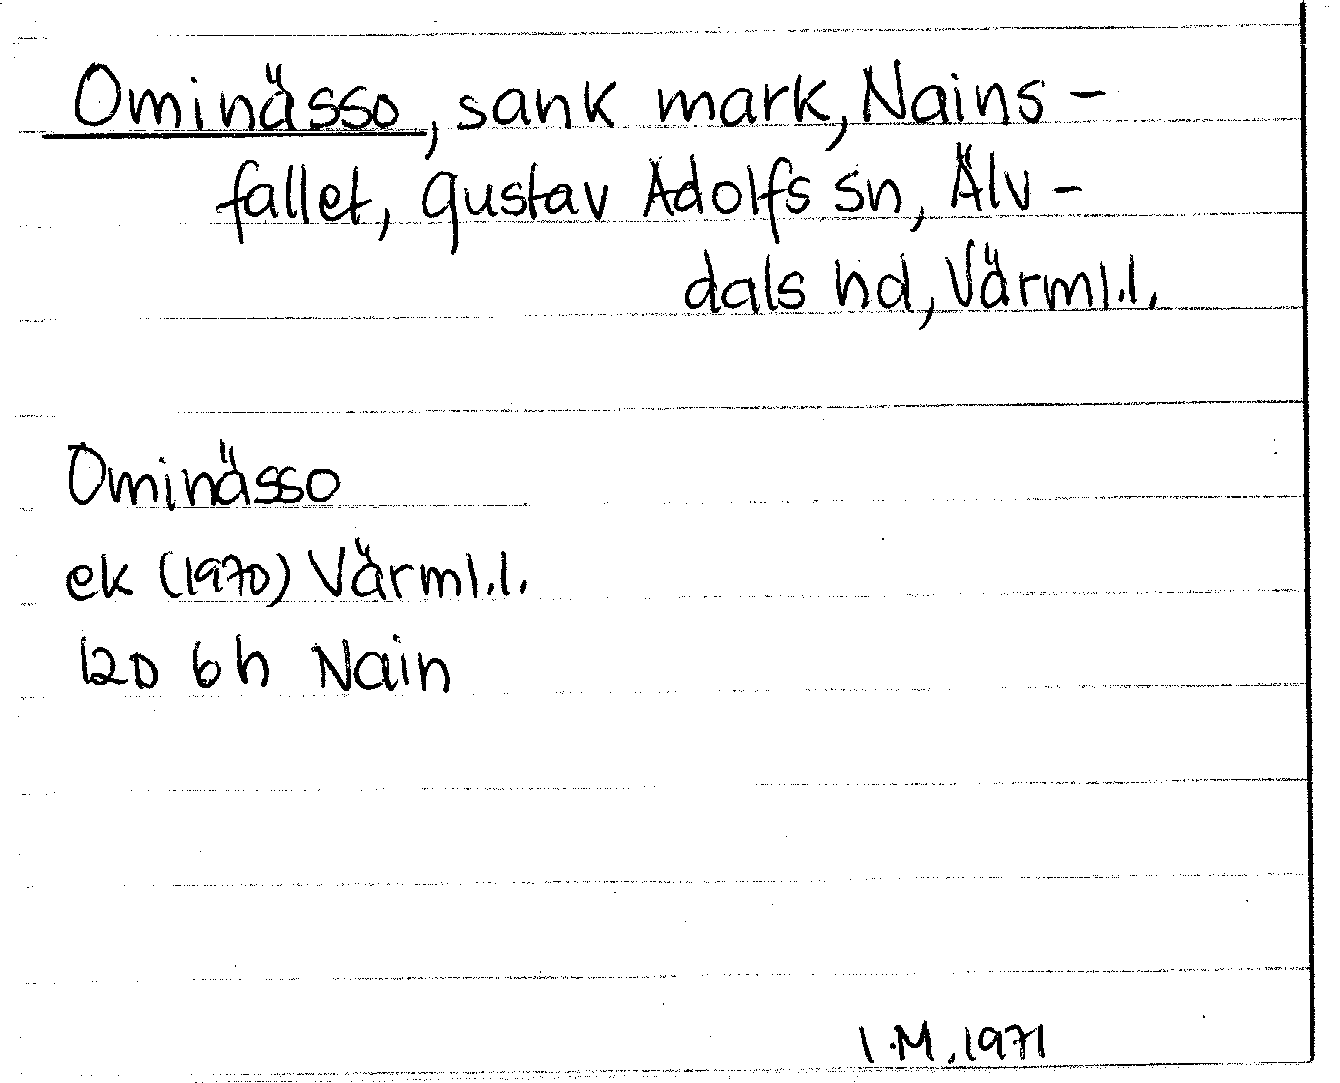 Ominässo, sank mark, Nains-
fallet, Gustav Adolfs sn, Älv-
dals hd, Värml.l.
Ominässo
ek (1970) Värml.l.
12D 6h Nain
I.M. 1971